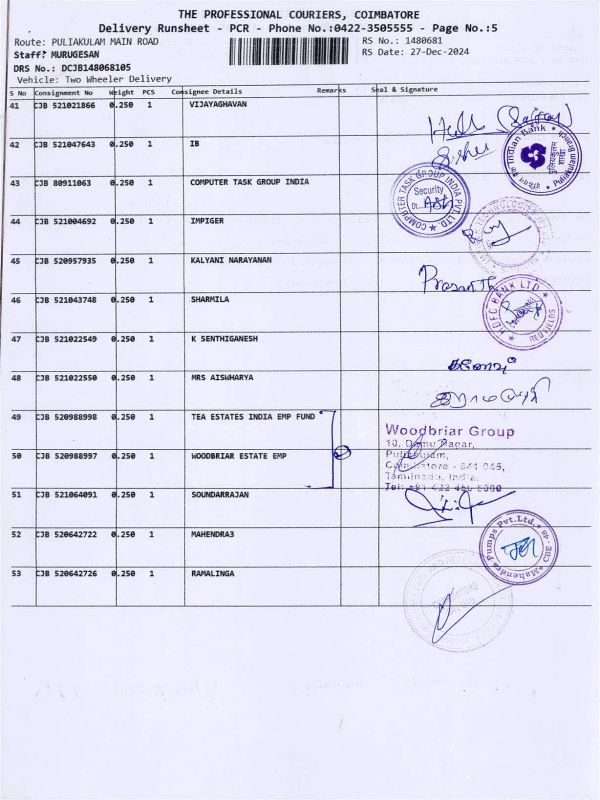 THE PROFESSIONAL COURIERS, COIMBATORE
Delivery Runsheet - PCR - Phone No.:0422-3505555 - Page No.:5
Route: PULIAKULAM MAIN ROAD RS No.: 1480681
Staff: MURUGESAN RS Date: 27-Dec-2024
DRS No.: DCJB148068105
Vehicle: Two Wheeler Delivery
S No Consignment No Weight PCS Consignee Details Remarks Seal & Signature
41 CJB 521021866 0.250 1 VIJAYAGHAVAN
42 CJB 521047643 0.250 1 IB
Indian Bank
Puliakulam Branch
43 CJB 80911063 0.250 1 COMPUTER TASK GROUP INDIA
COMPUTER TASK GROUP INDIA PVT. LTD.
Security
Dt.
44 CJB 521004692 0.250 1 IMPIGER
45 CJB 520957935 0.250 1 KALYANI NARAYANAN
Prasanth
46 CJB 521043748 0.250 1 SHARMILA
HDFC BANK LTD.
RED FIELDS
47 CJB 521022549 0.250 1 K SENTHIGANESH
48 CJB 521022550 0.250 1 MRS AISWHARYA
49 CJB 520988998 0.250 1 TEA ESTATES INDIA EMP FUND
Woodbriar Group
50 CJB 520988997 0.250 1 WOODBRIAR ESTATE EMP
Puliakulam,
Coimbatore - 641 045,
Tamilnadu, India.
51 CJB 521064091 0.250 1 SOUNDARRAJAN
52 CJB 520642722 0.250 1 MAHENDRA3
Mahendra Pumps Pvt.Ltd.
CBE - 45
53 CJB 520642726 0.250 1 RAMALINGA